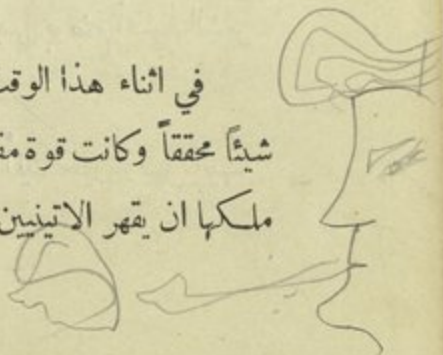 في اثناء هذا الوقت
شيئاً محققاً وكانت قوة
ملكها ان يقهر الاتينيين